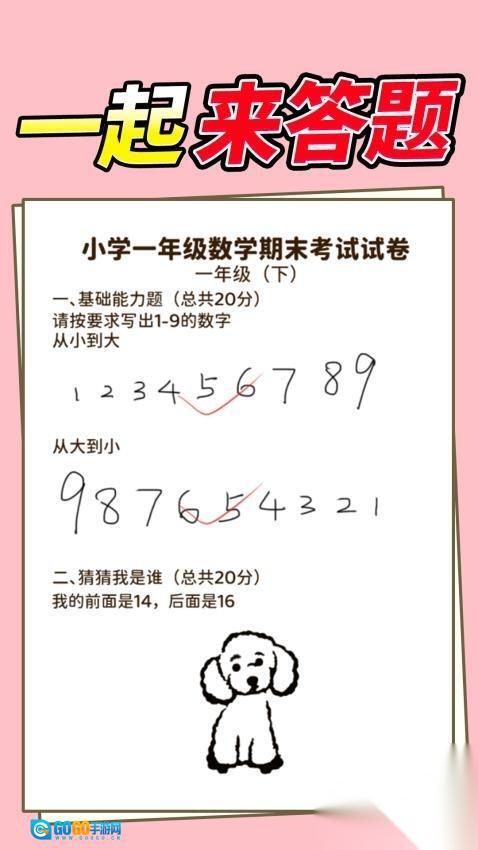 一起来答题
小学一年级数学期末考试试卷
一年级（下）
一、基础能力题（总共20分）
请按要求写出1-9的数字
从小到大
1 2 3 4 5 6 7 8 9
从大到小
9 8 7 6 5 4 3 2 1
二、猜猜我是谁（总共20分）
我的前面是14，后面是16
GOGO手游网
WWW.GOGCQ.COM